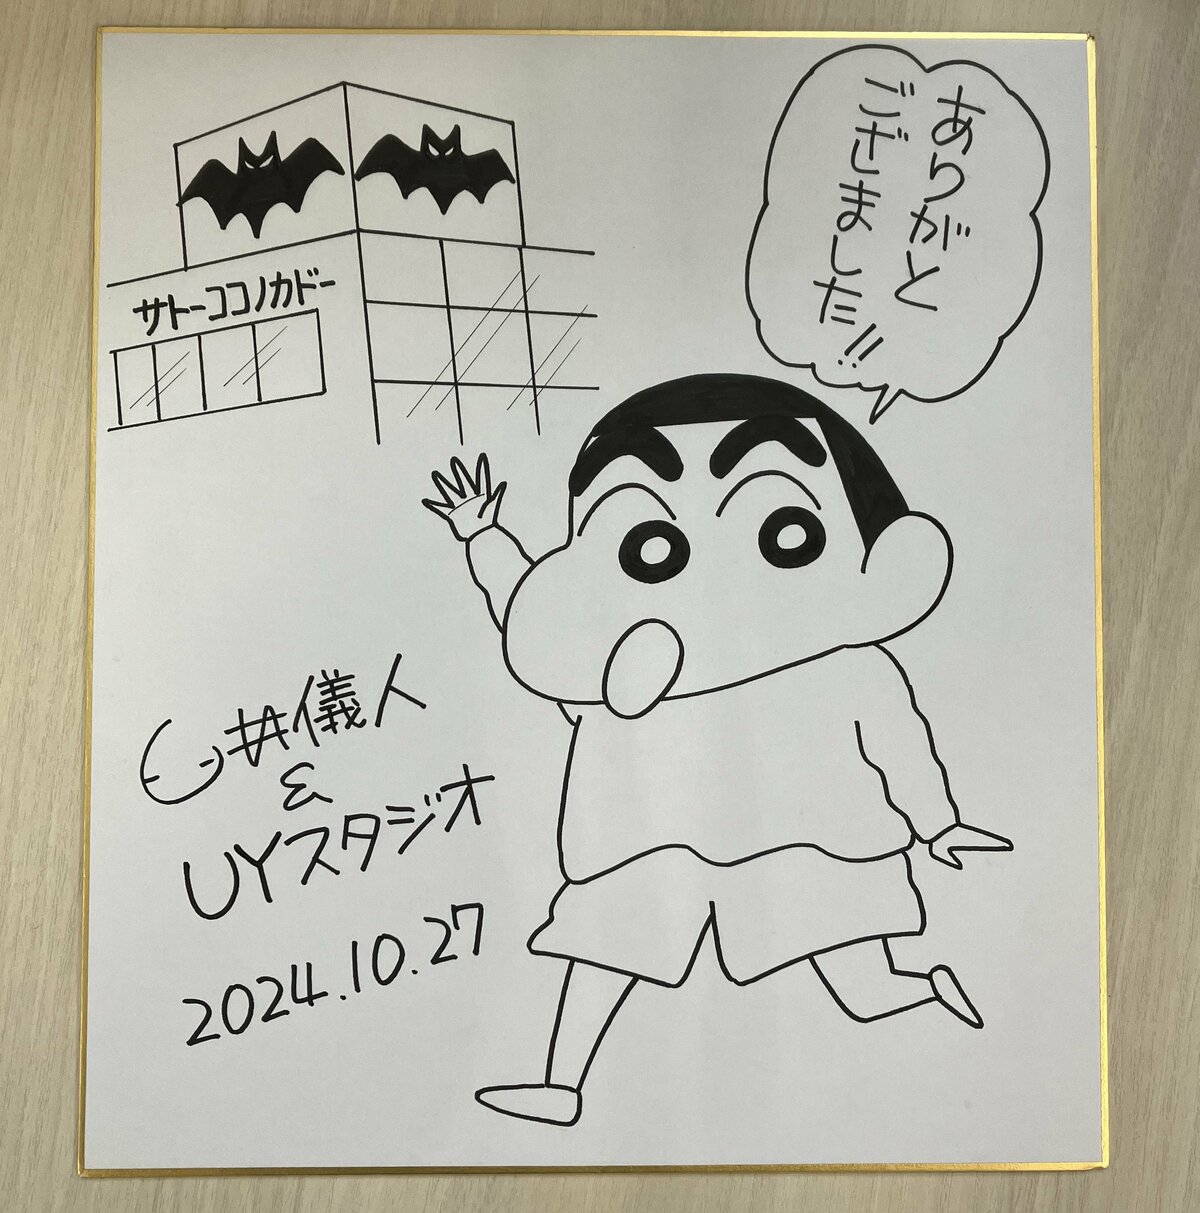 ありがと
ござました!!
サトーココノカドー
臼井儀人
&
UYスタジオ
2024.10.27